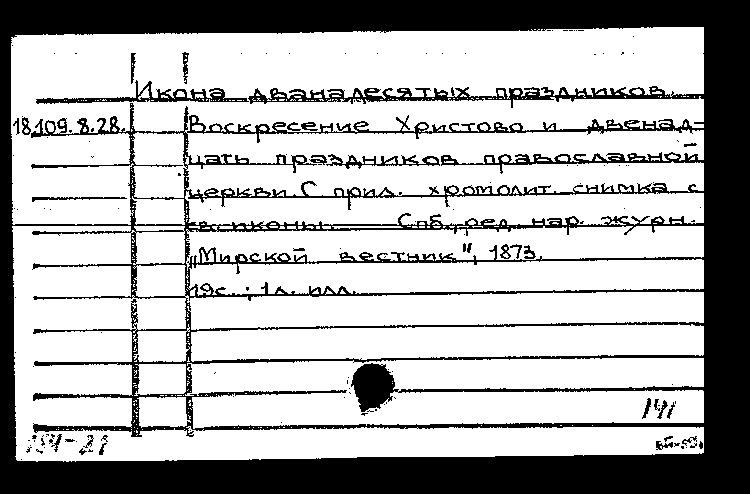 Икона дванадесятых праздников.
18.109.8.28. Воскресение Христово и двенад-
цать праздников православной
церкви. С прил. хромолит. снимка с
иконы. Спб., ред. нар. журн.
„Мирской вестник", 1873.
19с.; 1л. илл.
141
154-21